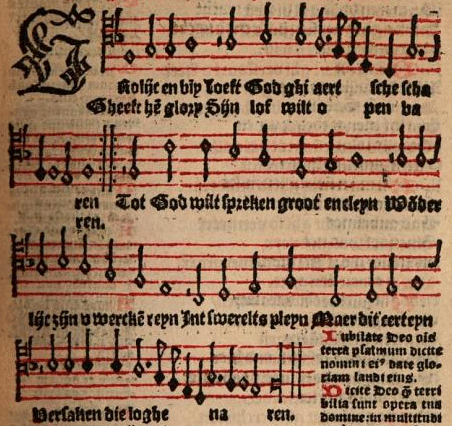 Rolijc en vrp loeft God ghi aert sche scha
Gheeft hē glorp Sijn lof wilt o pen ba
ren Tot God wilt spreken groot en cleyn Wōder
ren.
lijc zijn v werckē reyn Int swerelts pleyn Maer dit certeyn
Versaken die loghe na ren.
Iubilate Deo oīs
terra psalmum dicite
nomini ei⁹ date glo-
riam laudi eius.
Dicite Deo q̄ terri
bilia sunt opera tua
domine: in multitudi